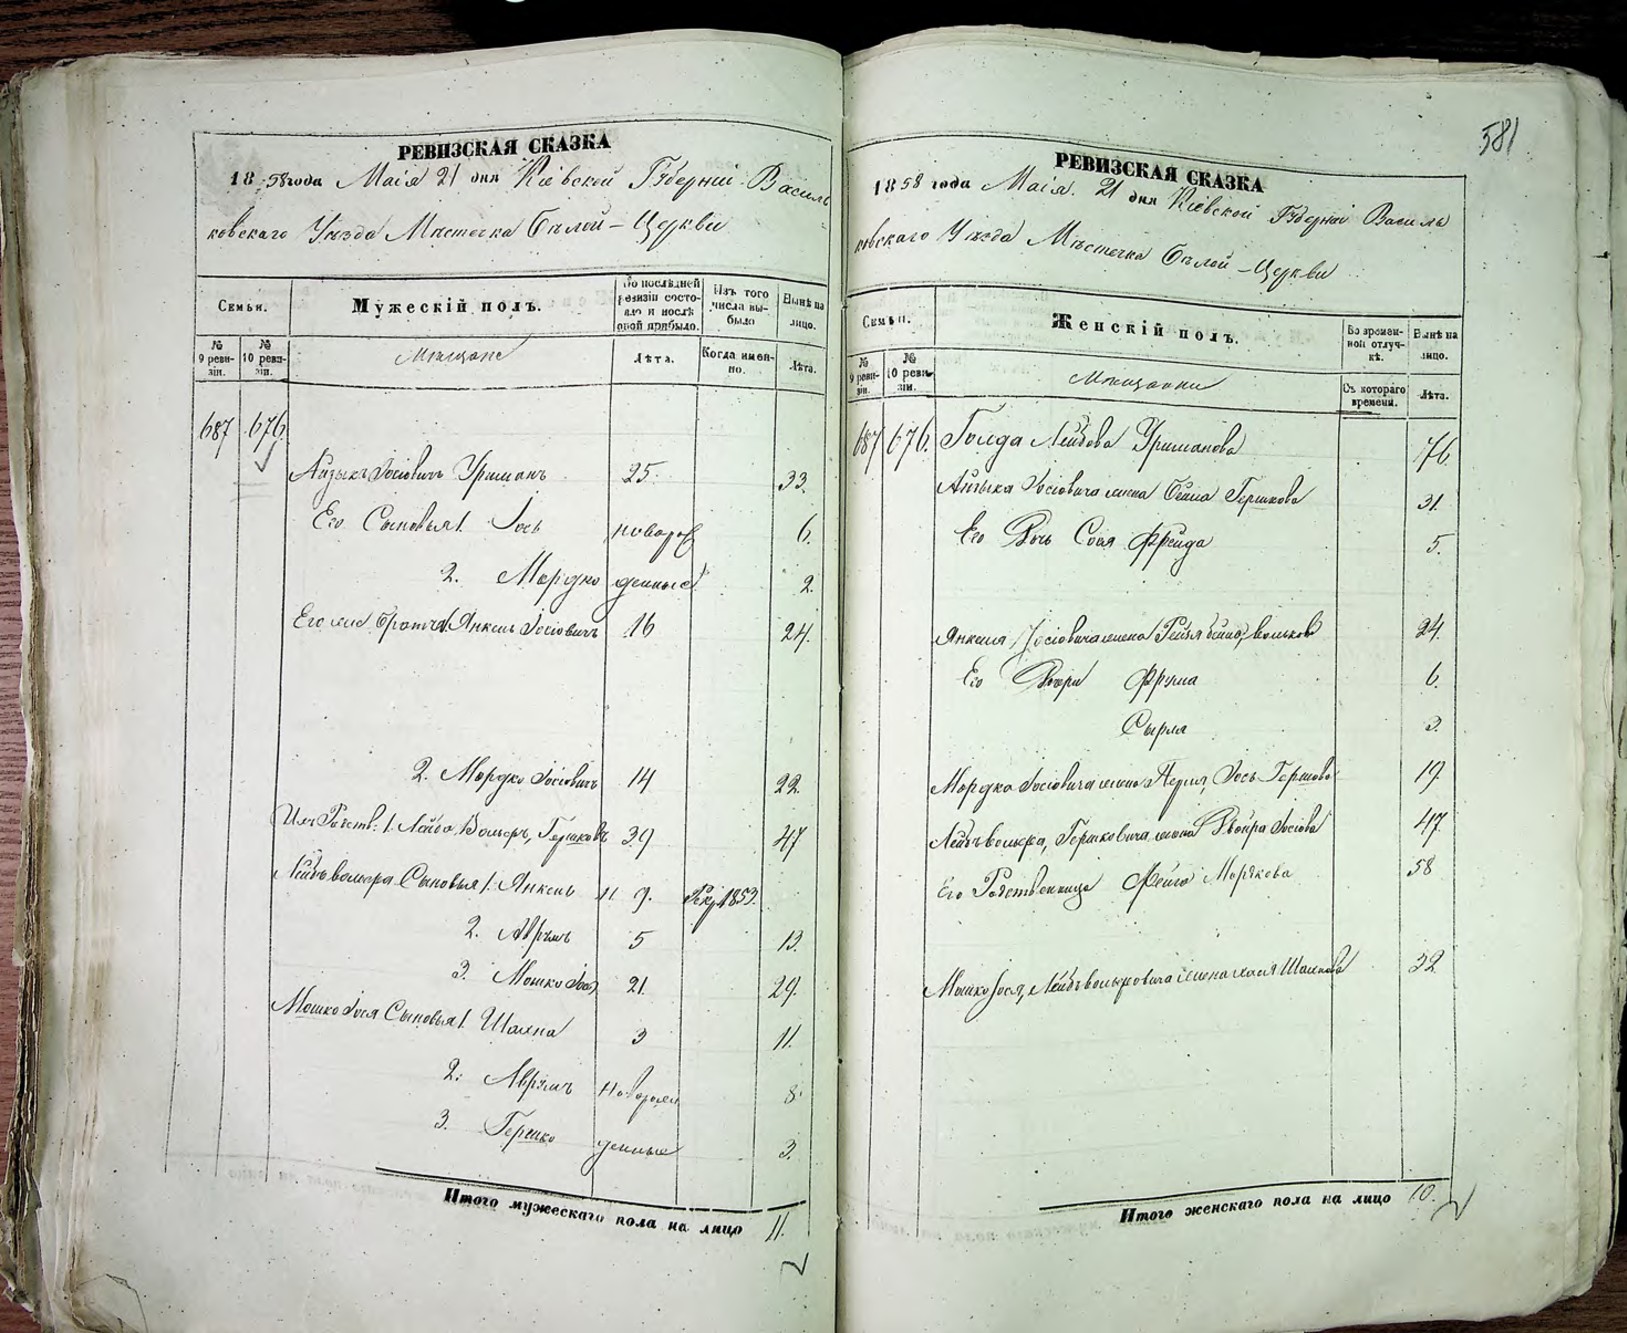 581
РЕВИЗСКАЯ СКАЗКА
1858 года Маія 21 дня Кіевской Губерніи Василь
ковскаго Уѣзда Мѣстечка Бѣлой-Церкви
Семьи.
Мужескій полъ.
По послѣдней ревизіи состояло и послѣ оной прибыло.
Изъ того числа выбыло
Нынѣ на лицо.
№ 9 ревизіи.
№ 10 ревизіи.
Мѣщане
Лѣта.
Когда именно.
Лѣта.
687 676.
Айзыкъ Іосіовичъ Уриманъ 25. 33.
Его Сыновья 1. Іось новорож 6.
2. Мордко денные 2.
Его же братья 1. Янкель Іосіовичъ 16 24.
2. Мордко Іосіовичъ 14 22.
Ихъ Родств: 1. Лейба Вольфъ, Гершковъ 39 47
Лейбъ вольфа Сыновья 1. Янкель 9. Рекр. 1853.
2. Аврумъ 5 13.
3. Мошко Іось 21. 29.
Мошко Іося Сыновья 1. Шаяна 3 11.
2. Аврумъ новорож 8.
3. Гершко денные 3.
Итого мужескаго пола на лицо 11.
РЕВИЗСКАЯ СКАЗКА
1858 года Маія 21 дня Кіевской Губерніи Василь
ковскаго Уѣзда Мѣстечка Бѣлой-Церкви
Семьи.
Женскій полъ.
Во временной отлучкѣ.
Нынѣ на лицо.
№ 9 ревизіи.
№ 10 ревизіи.
Мѣщанки
Съ котораго времени.
Лѣта.
687 676. Голда Лейбова Уриманова 76.
Айзыка Іосіовича жена Бейла Гершкова 31.
Его Дочь Сося Фрейда 5.
Янкеля Іосіовича жена Рейзя Бейла, волькова 24.
Его Дочери Фрума 6.
Сырля 3.
Мордка Іосіовича жена Перля, Іось-Гершова 19.
Лейбъ вольфа, Гершковича жена Двойра Іосіова 47
Его Родственница Фейга Моркова 58
Мошко Іося, Лейбъ вольфовича жена Хася Шаяова 32
Итого женскаго пола на лицо 10.